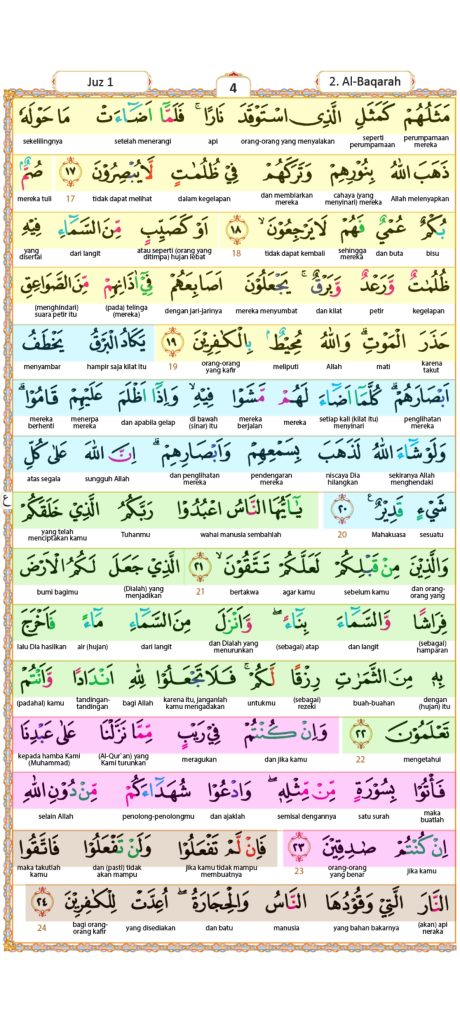 Juz 1
4
2. Al-Baqarah
مَثَلُهُمْ كَمَثَلِ الَّذِى اسْتَوْقَدَ نَارًاۚ فَلَمَّآ اَضَاۤءَتْ مَا حَوْلَهٗ
perumpamaan mereka seperti perumpamaan orang-orang yang menyalakan api setelah menerangi sekelilingnya
ذَهَبَ اللّٰهُ بِنُوْرِهِمْ وَتَرَكَهُمْ فِيْ ظُلُمٰتٍ لَّا يُبْصِرُوْنَ ١٧ صُمٌّۢ
Allah melenyapkan cahaya (yang menyinari) mereka dan membiarkan mereka dalam kegelapan tidak dapat melihat 17 mereka tuli
بُكْمٌ عُمْيٌ فَهُمْ لَا يَرْجِعُوْنَۙ ١٨ اَوْ كَصَيِّبٍ مِّنَ السَّمَاۤءِ فِيْهِ
bisu dan buta sehingga mereka tidak dapat kembali 18 atau seperti (orang yang ditimpa) hujan lebat dari langit yang disertai
ظُلُمٰتٌ وَّرَعْدٌ وَّبَرْقٌۚ يَجْعَلُوْنَ اَصَابِعَهُمْ فِيْٓ اٰذَانِهِمْ مِّنَ الصَّوَاعِقِ
kegelapan petir dan kilat mereka menyumbat dengan jari-jarinya (pada) telinga (mereka) (menghindari) suara petir
حَذَرَ الْمَوْتِۗ وَاللّٰهُ مُحِيْطٌۢ بِالْكٰفِرِيْنَ ١٩ يَكَادُ الْبَرْقُ يَخْطَفُ
karena takut mati Allah meliputi orang-orang yang kafir 19 hampir saja kilat itu menyambar
اَبْصَارَهُمْۗ كُلَّمَآ اَضَاۤءَ لَهُمْ مَّشَوْا فِيْهِۙ وَاِذَآ اَظْلَمَ عَلَيْهِمْ قَامُوْاۗ
penglihatan mereka setiap kali (kilat itu) menyinari mereka mereka berjalan di bawah (sinar) itu dan apabila gelap menerpa mereka mereka berhenti
وَلَوْ شَاۤءَ اللّٰهُ لَذَهَبَ بِسَمْعِهِمْ وَاَبْصَارِهِمْۗ اِنَّ اللّٰهَ عَلٰى كُلِّ
sekiranya Allah menghendaki niscaya Dia hilangkan pendengaran mereka dan penglihatan mereka sungguh Allah atas segala
شَيْءٍ قَدِيْرٌࣖ ٢٠ يٰٓاَيُّهَا النَّاسُ اعْبُدُوْا رَبَّكُمُ الَّذِيْ خَلَقَكُمْ
ع
sesuatu Mahakuasa 20 wahai manusia sembahlah Tuhanmu yang telah menciptakan kamu
وَالَّذِيْنَ مِنْ قَبْلِكُمْ لَعَلَّكُمْ تَتَّقُوْنَۙ ٢١ الَّذِيْ جَعَلَ لَكُمُ الْاَرْضَ
dan orang-orang yang sebelum kamu agar kamu bertakwa 21 (Dialah) yang menjadikan bumi bagimu
فِرَاشًا وَّالسَّمَاۤءَ بِنَاۤءًۖ وَّاَنْزَلَ مِنَ السَّمَاۤءِ مَاۤءً فَاَخْرَجَ
(sebagai) hamparan dan langit (sebagai) atap dan Dialah yang menurunkan dari langit air (hujan) lalu Dia hasilkan
بِهٖ مِنَ الثَّمَرٰتِ رِزْقًا لَّكُمْۚ فَلَا تَجْعَلُوْا لِلّٰهِ اَنْدَادًا وَّاَنْتُمْ
dengan (hujan) itu buah-buahan (sebagai) rezeki untukmu karena itu, janganlah kamu mengadakan bagi Allah tandingan-tandingan (padahal) kamu
تَعْلَمُوْنَ ٢٢ وَاِنْ كُنْتُمْ فِيْ رَيْبٍ مِّمَّا نَزَّلْنَا عَلٰى عَبْدِنَا
mengetahui 22 dan jika kamu meragukan (Al-Qur'an) yang Kami turunkan kepada hamba Kami (Muhammad)
فَأْتُوْا بِسُوْرَةٍ مِّنْ مِّثْلِهٖۖ وَادْعُوْا شُهَدَاۤءَكُمْ مِّنْ دُوْنِ اللّٰهِ
maka buatlah satu surah semisal dengannya dan ajaklah penolong-penolongmu selain Allah
اِنْ كُنْتُمْ صٰدِقِيْنَ ٢٣ فَاِنْ لَّمْ تَفْعَلُوْا وَلَنْ تَفْعَلُوْا فَاتَّقُوا
jika kamu orang-orang yang benar 23 jika kamu tidak mampu membuatnya dan (pasti) tidak akan mampu maka takutlah kamu
النَّارَ الَّتِيْ وَقُوْدُهَا النَّاسُ وَالْحِجَارَةُۖ اُعِدَّتْ لِلْكٰفِرِيْنَ ٢٤
(akan) api neraka yang bahan bakarnya manusia dan batu yang disediakan bagi orang-orang kafir 24